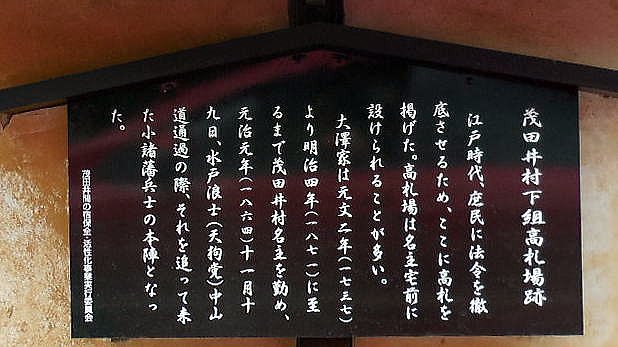 茂田井村下組高札場跡
江戸時代、庶民に法令を徹
底させるため、ここに高札を
掲げた。高札場は名主宅前に
設けられることが多い。
大澤家は元文二年(一七三七)
より明治四年(一八七一)に至
るまで茂田井村名主を勤め、
元治元年(一八六四)十一月十
九日、水戸浪士(天狗党)中山
道通過の際、それを追って来
た小諸藩兵士の本陣となっ
た。
茂田井間の宿保全・活性化事業実行委員会